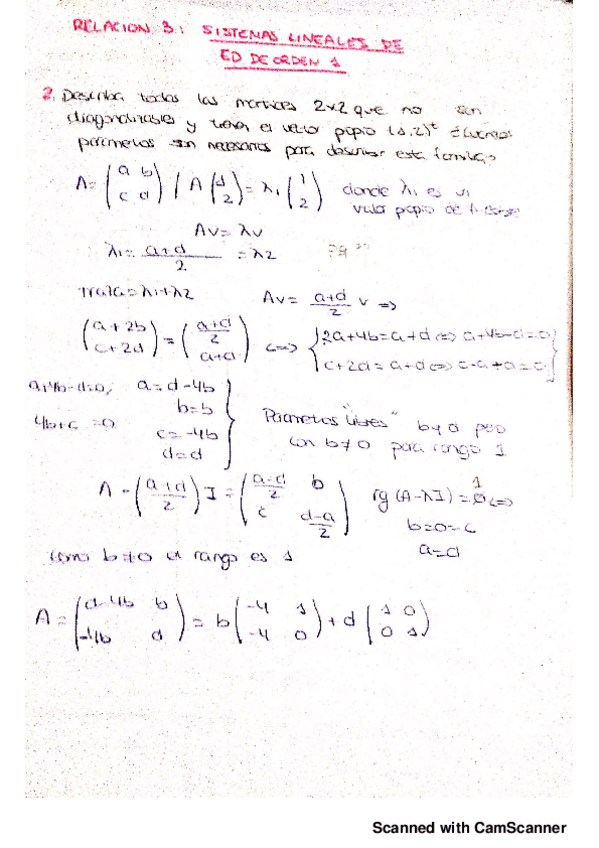 RELACION 3: SISTEMAS LINEALES DE
ED DE ORDEN 1
2. Describa todas las matrices 2x2 que no son
diagonalizables y tienen el vector propio (1,2)^t ¿Cuántos
parámetros son necesarios para describir esta familia?
A = (a b; c d) / A (1; 2) = λ₁ (1; 2) donde λ₁ es un
valor propio de
Av = λv
λ₁ = (a+d)/2 = λ2
traza = λ1+λ2 Av = (a+d)/2 v =>
(a+2b; c+2d) = ((a+d)/2; a+d) <=> { 2a+4b=a+d <=> a+4b-d=0; c+2d=a+d <=> c-a+d=0 }
a+4b-d=0, a=d-4b
4b+c=0 b=b
c=-4b
d=d
Parámetros "libres" b y d pero
con b≠0 para rango 1
A - ((a+d)/2) I = ((a-d)/2 b; c (d-a)/2) rg (A-λI) = 1 <=>
b=0=c
a=d
como b≠0 el rango es 1
A = (d-4b b; -4b d) = b (-4 1; -4 0) + d (1 0; 0 1)
Scanned with CamScanner